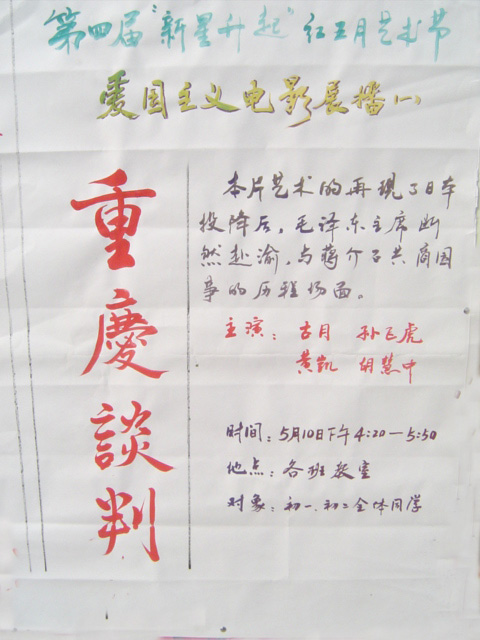 第四届"新星升起"红五月艺术节
爱国主义电影展播(一)
重慶談判
本片艺术的再现了日本
投降后，毛泽东主席断
然赴渝，与蒋介石共商国
事的历程场面。
主演：古月 孙飞虎
黄凯 胡慧中
时间：5月10日下午4:20—5:50
地点：各班教室
对象：初一、初二全体同学